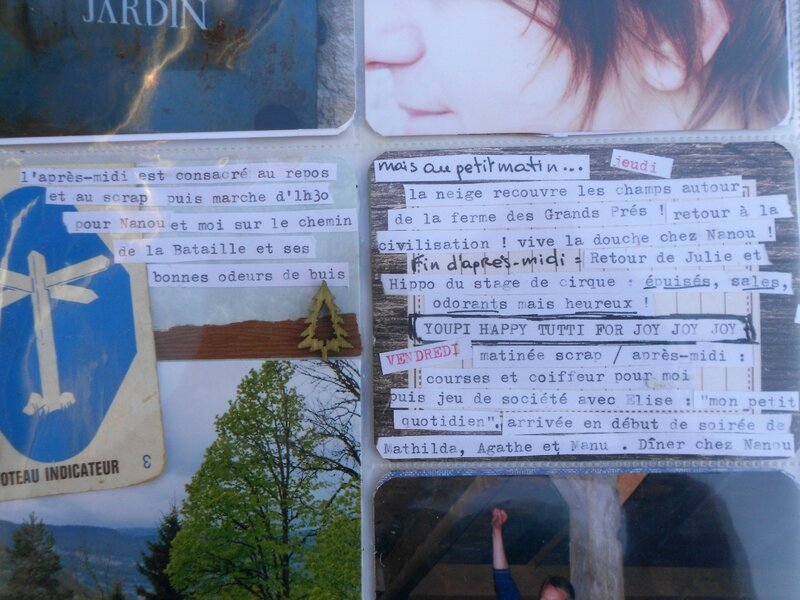 JARDIN
l'après-midi est consacré au repos
et au scrap puis marche d'1h30
pour Nanou et moi sur le chemin
de la Bataille et ses
bonnes odeurs de buis
OTEAU INDICATEUR
3
mais au petit matin...
jeudi
la neige recouvre les champs autour
de la ferme des Grands Prés ! retour à la
civilisation ! vive la douche chez Nanou !
Fin d'après-midi = Retour de Julie et
Hippo du stage de cirque : épuisés, sales,
odorants mais heureux !
YOUPI HAPPY TUTTI FOR JOY JOY JOY
VENDREDI matinée scrap / après-midi :
courses et coiffeur pour moi
puis jeu de société avec Elise : "mon petit
quotidien". arrivée en début de soirée de
Mathilda, Agathe et Manu . Dîner chez Nanou